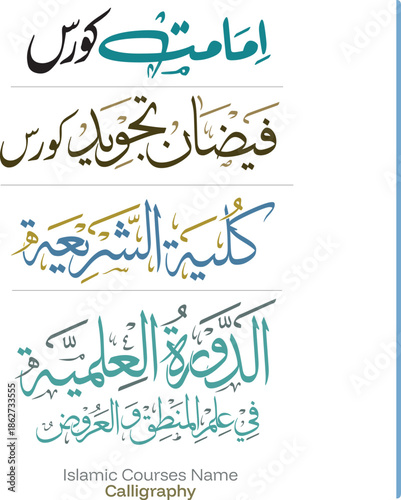 اِمَامت کورس
فیضان تجوید کورس
كُلية الشَّرِيعَة
الدَّورَةُ العِلمِيَّة
في عِلمِ المَنطِقِ وَالعَرُوضْ
Islamic Courses Name
Calligraphy
Adobe Stock | #1862733555